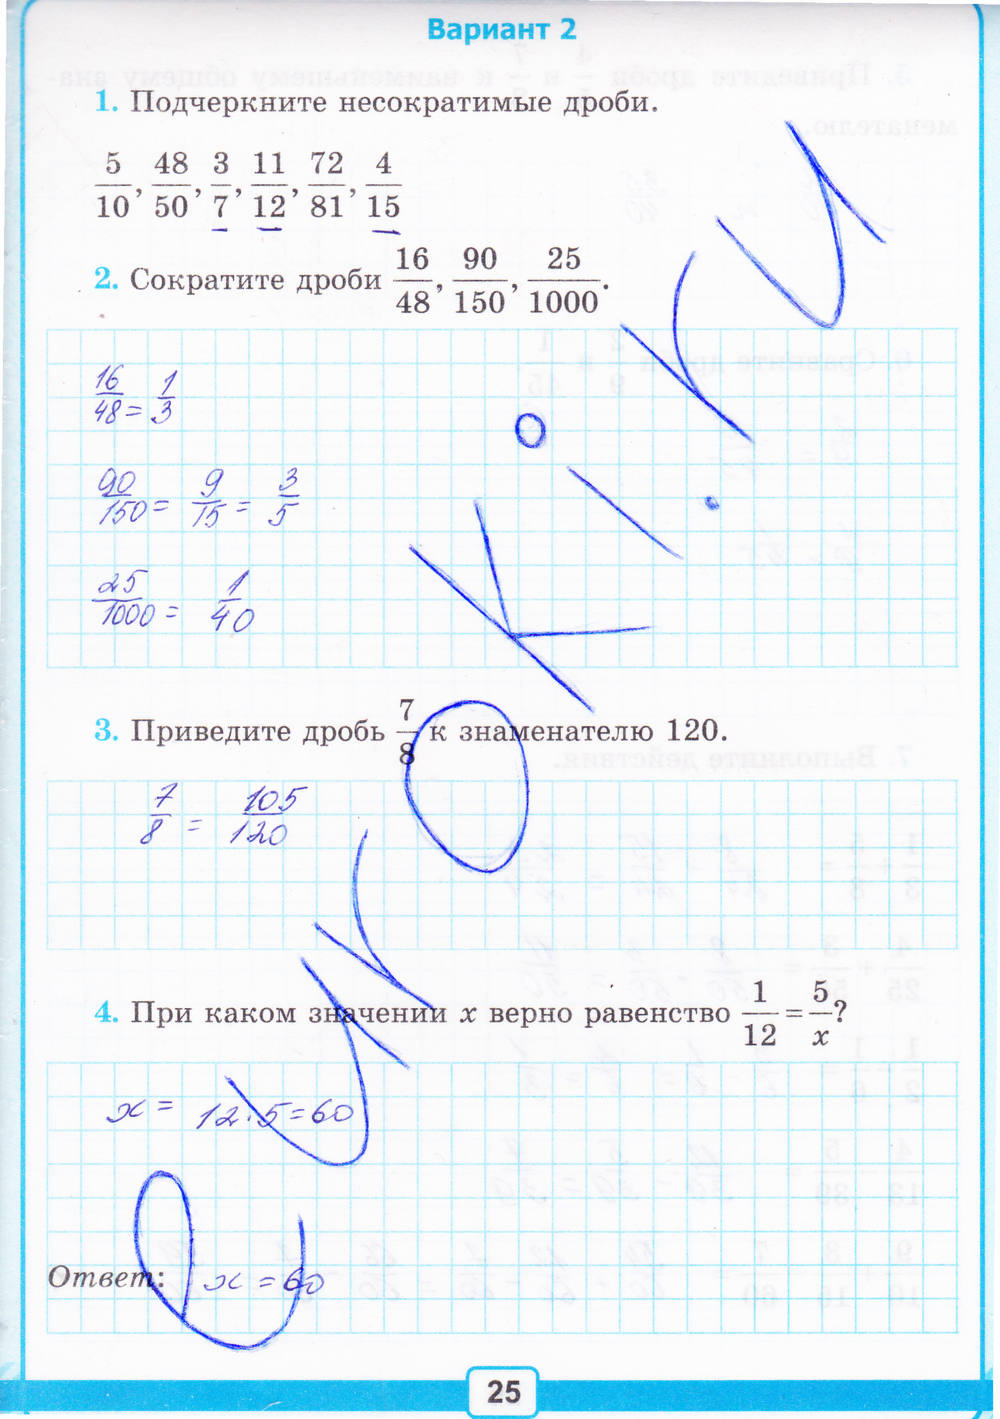 Вариант 2
1. Подчеркните несократимые дроби.
5/10, 48/50, 3/7, 11/12, 72/81, 4/15
2. Сократите дроби 16/48, 90/150, 25/1000.
16/48 = 1/3
90/150 = 9/15 = 3/5
25/1000 = 1/40
3. Приведите дробь 7/8 к знаменателю 120.
7/8 = 105/120
4. При каком значении x верно равенство 1/12 = 5/x?
x = 12·5=60
Ответ: x = 60
25